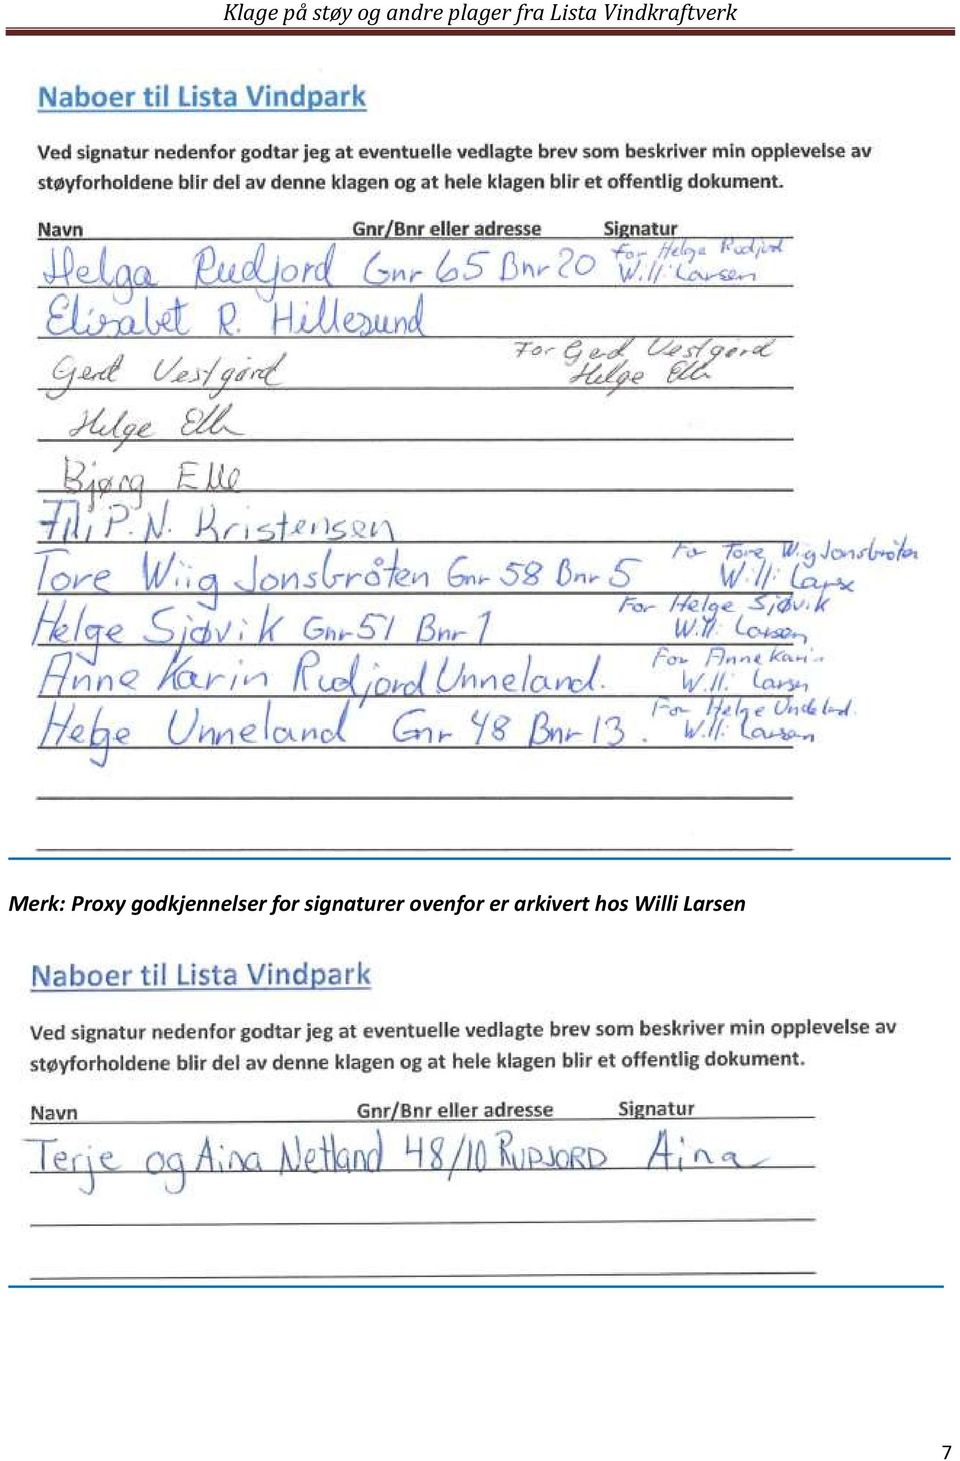 Klage på støy og andre plager fra Lista Vindkraftverk
Naboer til Lista Vindpark
Ved signatur nedenfor godtar jeg at eventuelle vedlagte brev som beskriver min opplevelse av
støyforholdene blir del av denne klagen og at hele klagen blir et offentlig dokument.
Navn Gnr/Bnr eller adresse Signatur
Helga Rudjord Gnr 65 Bnr 20 for Helga Rudjord
Willi Larsen
Elisabet R. Hillesund
Gerd Vestgård For Gerd Vestgård
Helge Elle
Helge Elle
Bjørg Elle
P. N. Kristensen
Tore Wiig Jonsbråten Gnr 58 Bnr 5 For Tore Wiig Jonsbråten
Willi Larsen
Helge Sjøvik Gnr 51 Bnr 1 For Helge Sjøvik
Willi Larsen
Anne Karin Rudjord Unneland. For Anne Karin
Willi Larsen
Helge Unneland Gnr 48 Bnr 13. For Helge
Willi Larsen
Merk: Proxy godkjennelser for signaturer ovenfor er arkivert hos Willi Larsen
Naboer til Lista Vindpark
Ved signatur nedenfor godtar jeg at eventuelle vedlagte brev som beskriver min opplevelse av
støyforholdene blir del av denne klagen og at hele klagen blir et offentlig dokument.
Navn Gnr/Bnr eller adresse Signatur
Terje og Aina Netland 48/10 RUDJORD Aina
7